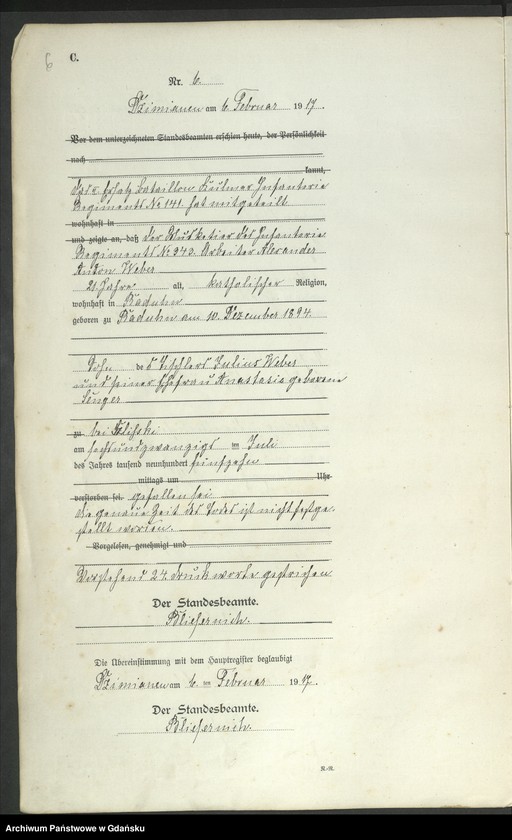 6
C.
Nr. 6.
Dzimianen am 6 Februar 1917.
Vor dem unterzeichneten Standesbeamten erschien heute, der Persönlichkeit
nach
kannt,
Ersatz Bataillon Kulmer Infanterie
Regiments No 141. hat mitgeteilt
wohnhaft in
und zeigte an, daß der Musketier des Infanterie
Regiments No 343. Arbeiter Alexander
Anton Weber
21 Jahre alt, katholischer Religion,
wohnhaft in Raduhn
geboren zu Raduhn am 10. Dezember 1894.
Sohn des Tischlers Julius Weber
und seiner Ehefrau Anastasia geborene
Senger
zu bei
am sechsundzwanzigs ten Juli
des Jahres tausend neunhundert fünfzehn
mittags um Uhr
verstorben sei. gefallen sei
die genaue Zeit des Todes ist nicht festge-
stellt worden.
Vorgelesen, genehmigt und
Vorstehend 24 Druckworte gestrichen
Der Standesbeamte.
Bliefernich.
Die Übereinstimmung mit dem Hauptregister beglaubigt
Dzimianen am 6 ten Februar 1917.
Der Standesbeamte.
Bliefernich.
R.-R.
Archiwum Państwowe w Gdańsku